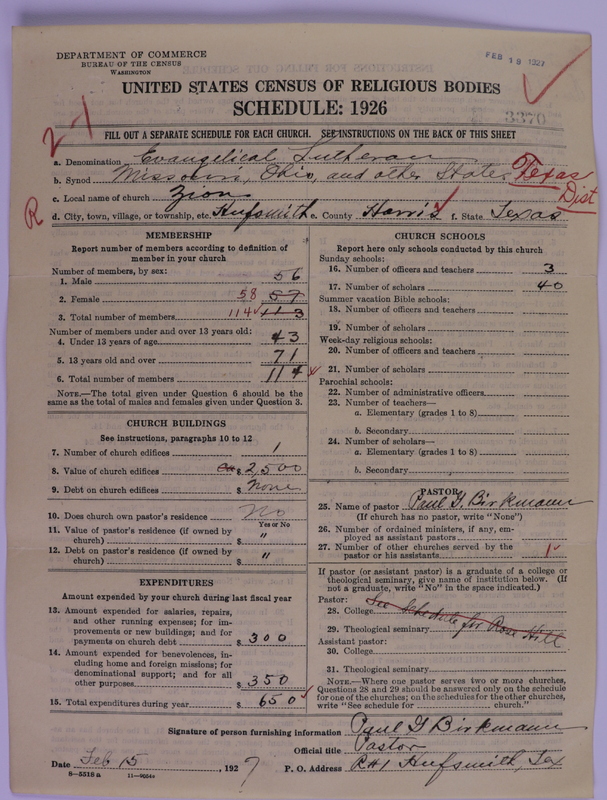 DEPARTMENT OF COMMERCE
BUREAU OF THE CENSUS
WASHINGTON
FEB 18 1927
UNITED STATES CENSUS OF RELIGIOUS BODIES
SCHEDULE: 1926
3370
2-1
FILL OUT A SEPARATE SCHEDULE FOR EACH CHURCH. SEE INSTRUCTIONS ON THE BACK OF THIS SHEET
a. Denomination Evangelical Lutheran
b. Synod Missouri, Ohio, and other States Texas Dist
c. Local name of church Zion
R
d. City, town, village, or township, etc. Hufsmith e. County Harris f. State Texas
MEMBERSHIP
Report number of members according to definition of member in your church
Number of members, by sex:
1. Male 56
2. Female 58 57
3. Total number of members 114 113
Number of members under and over 13 years old:
4. Under 13 years of age 43
5. 13 years old and over 71
6. Total number of members 114
NOTE.—The total given under Question 6 should be
same as the total of males and females given under Question 3.
CHURCH BUILDINGS
See instructions, paragraphs 10 to 12
7. Number of church edifices 1
8. Value of church edifices $ 2,500
9. Debt on church edifices $ None
10. Does church own pastor's residence No
Yes or No
11. Value of pastor's residence (if owned by
church) $ "
12. Debt on pastor's residence (if owned by
church) $ "
EXPENDITURES
Amount expended by your church during last fiscal year
13. Amount expended for salaries, repairs,
and other running expenses; for im-
provements or new buildings; and for
payments on church debt $ 300
14. Amount expended for benevolences, in-
cluding home and foreign missions; for
denominational support; and for all
other purposes $ 350
15. Total expenditures during year $ 650
CHURCH SCHOOLS
Report here only schools conducted by this church
Sunday schools:
16. Number of officers and teachers 3
17. Number of scholars 40
Summer vacation Bible schools:
18. Number of officers and teachers
19. Number of scholars
Week-day religious schools:
20. Number of officers and teachers
21. Number of scholars
Parochial schools:
22. Number of administrative officers
23. Number of teachers—
a. Elementary (grades 1 to 8)
b. Secondary
24. Number of scholars—
a. Elementary (grades 1 to 8)
b. Secondary
PASTOR
25. Name of pastor Paul G. Birkmann
(If church has no pastor, write "None")
26. Number of ordained ministers, if any, em-
ployed as assistant pastors
27. Number of other churches served by the
pastor or his assistants 1
If pastor (or assistant pastor) is a graduate of a college or
theological seminary, give name of institution below. (If
not a graduate, write "No" in the space indicated.)
Pastor:
28. College See Schedule for Rose Hill
29. Theological seminary
Assistant pastor:
30. College
31. Theological seminary
NOTE.—Where one pastor serves two or more churches,
Questions 28 and 29 should be answered only on the schedule
for one of the churches; on the schedules for the other churches,
write "See schedule for church."
Signature of person furnishing information Paul G Birkmann
Official title Pastor
Date Feb 15, 1927 P. O. Address R#1 Hufsmith, Tex
8—5518 a 11—9054